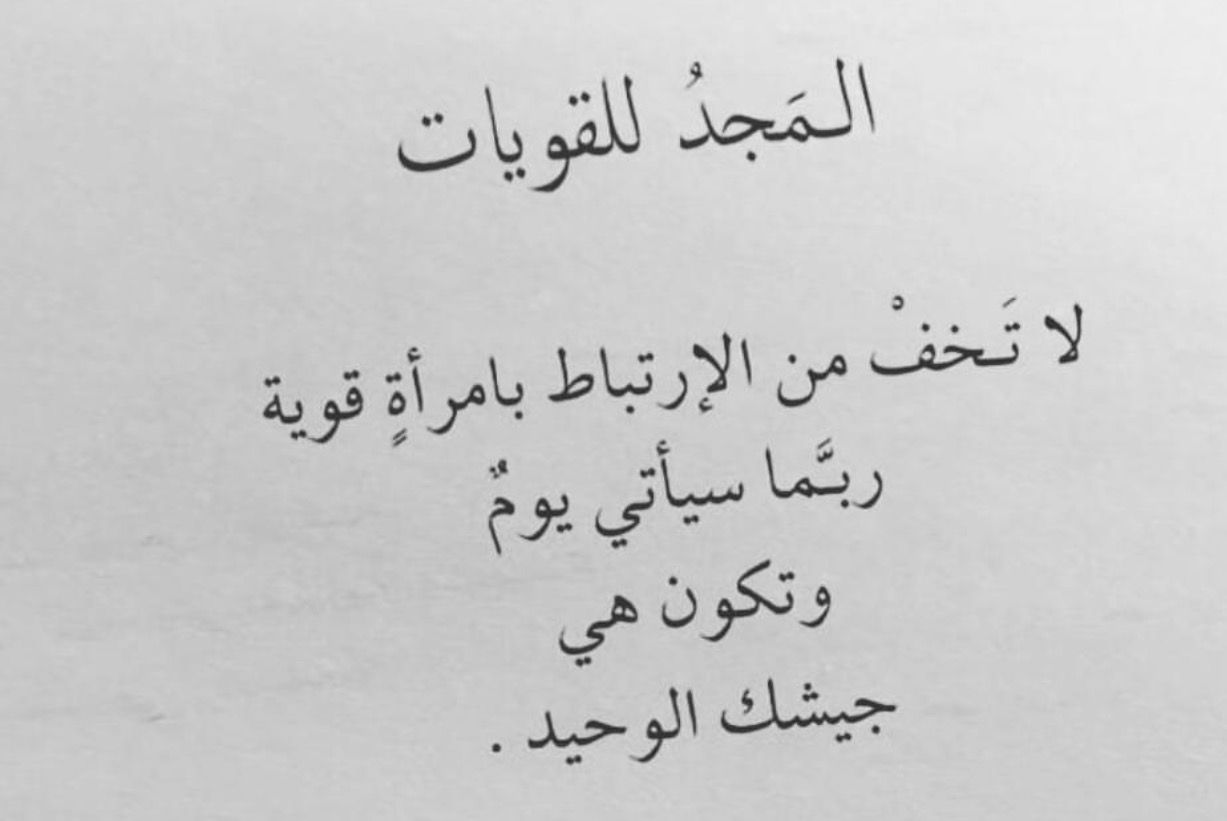 الـمَجدُ للقويات
لا تَـخفْ من الإرتباط بامرأةٍ قوية
ربـَّما سيأتي يومٌ
وتكون هي
جيشك الوحيد .